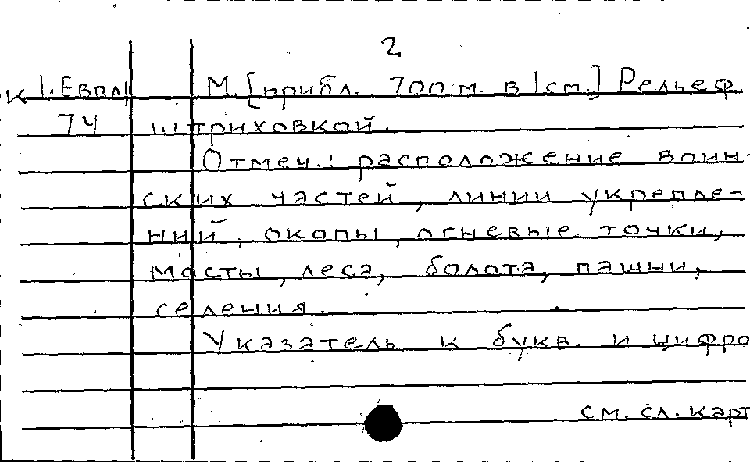 2
К 1. Евпл М. [прибл. 700 м. в 1 см.] Рельеф
74 штриховкой.
Отмеч.: расположение воин-
ских частей, линии укрепле-
ний, окопы, огневые точки,
мосты, леса, болота, пашни,
селения.
Указатель к букв. и цифро
см. сл. карт